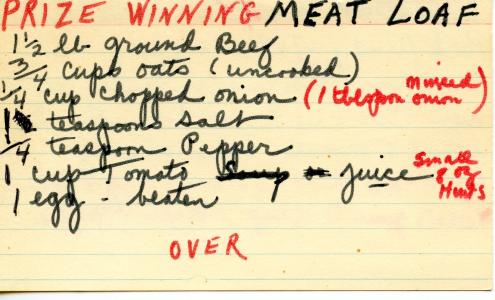 PRIZE WINNING MEAT LOAF
1 1/2 lb ground Beef
3/4 cups oats (uncooked)
1/4 cup chopped onion (1 tblspoon minced onion)
1 teaspoons salt
1/4 teaspoon Pepper
1 cup Tomato Soup or juice small 8 oz Hunts
1 egg - beaten
OVER